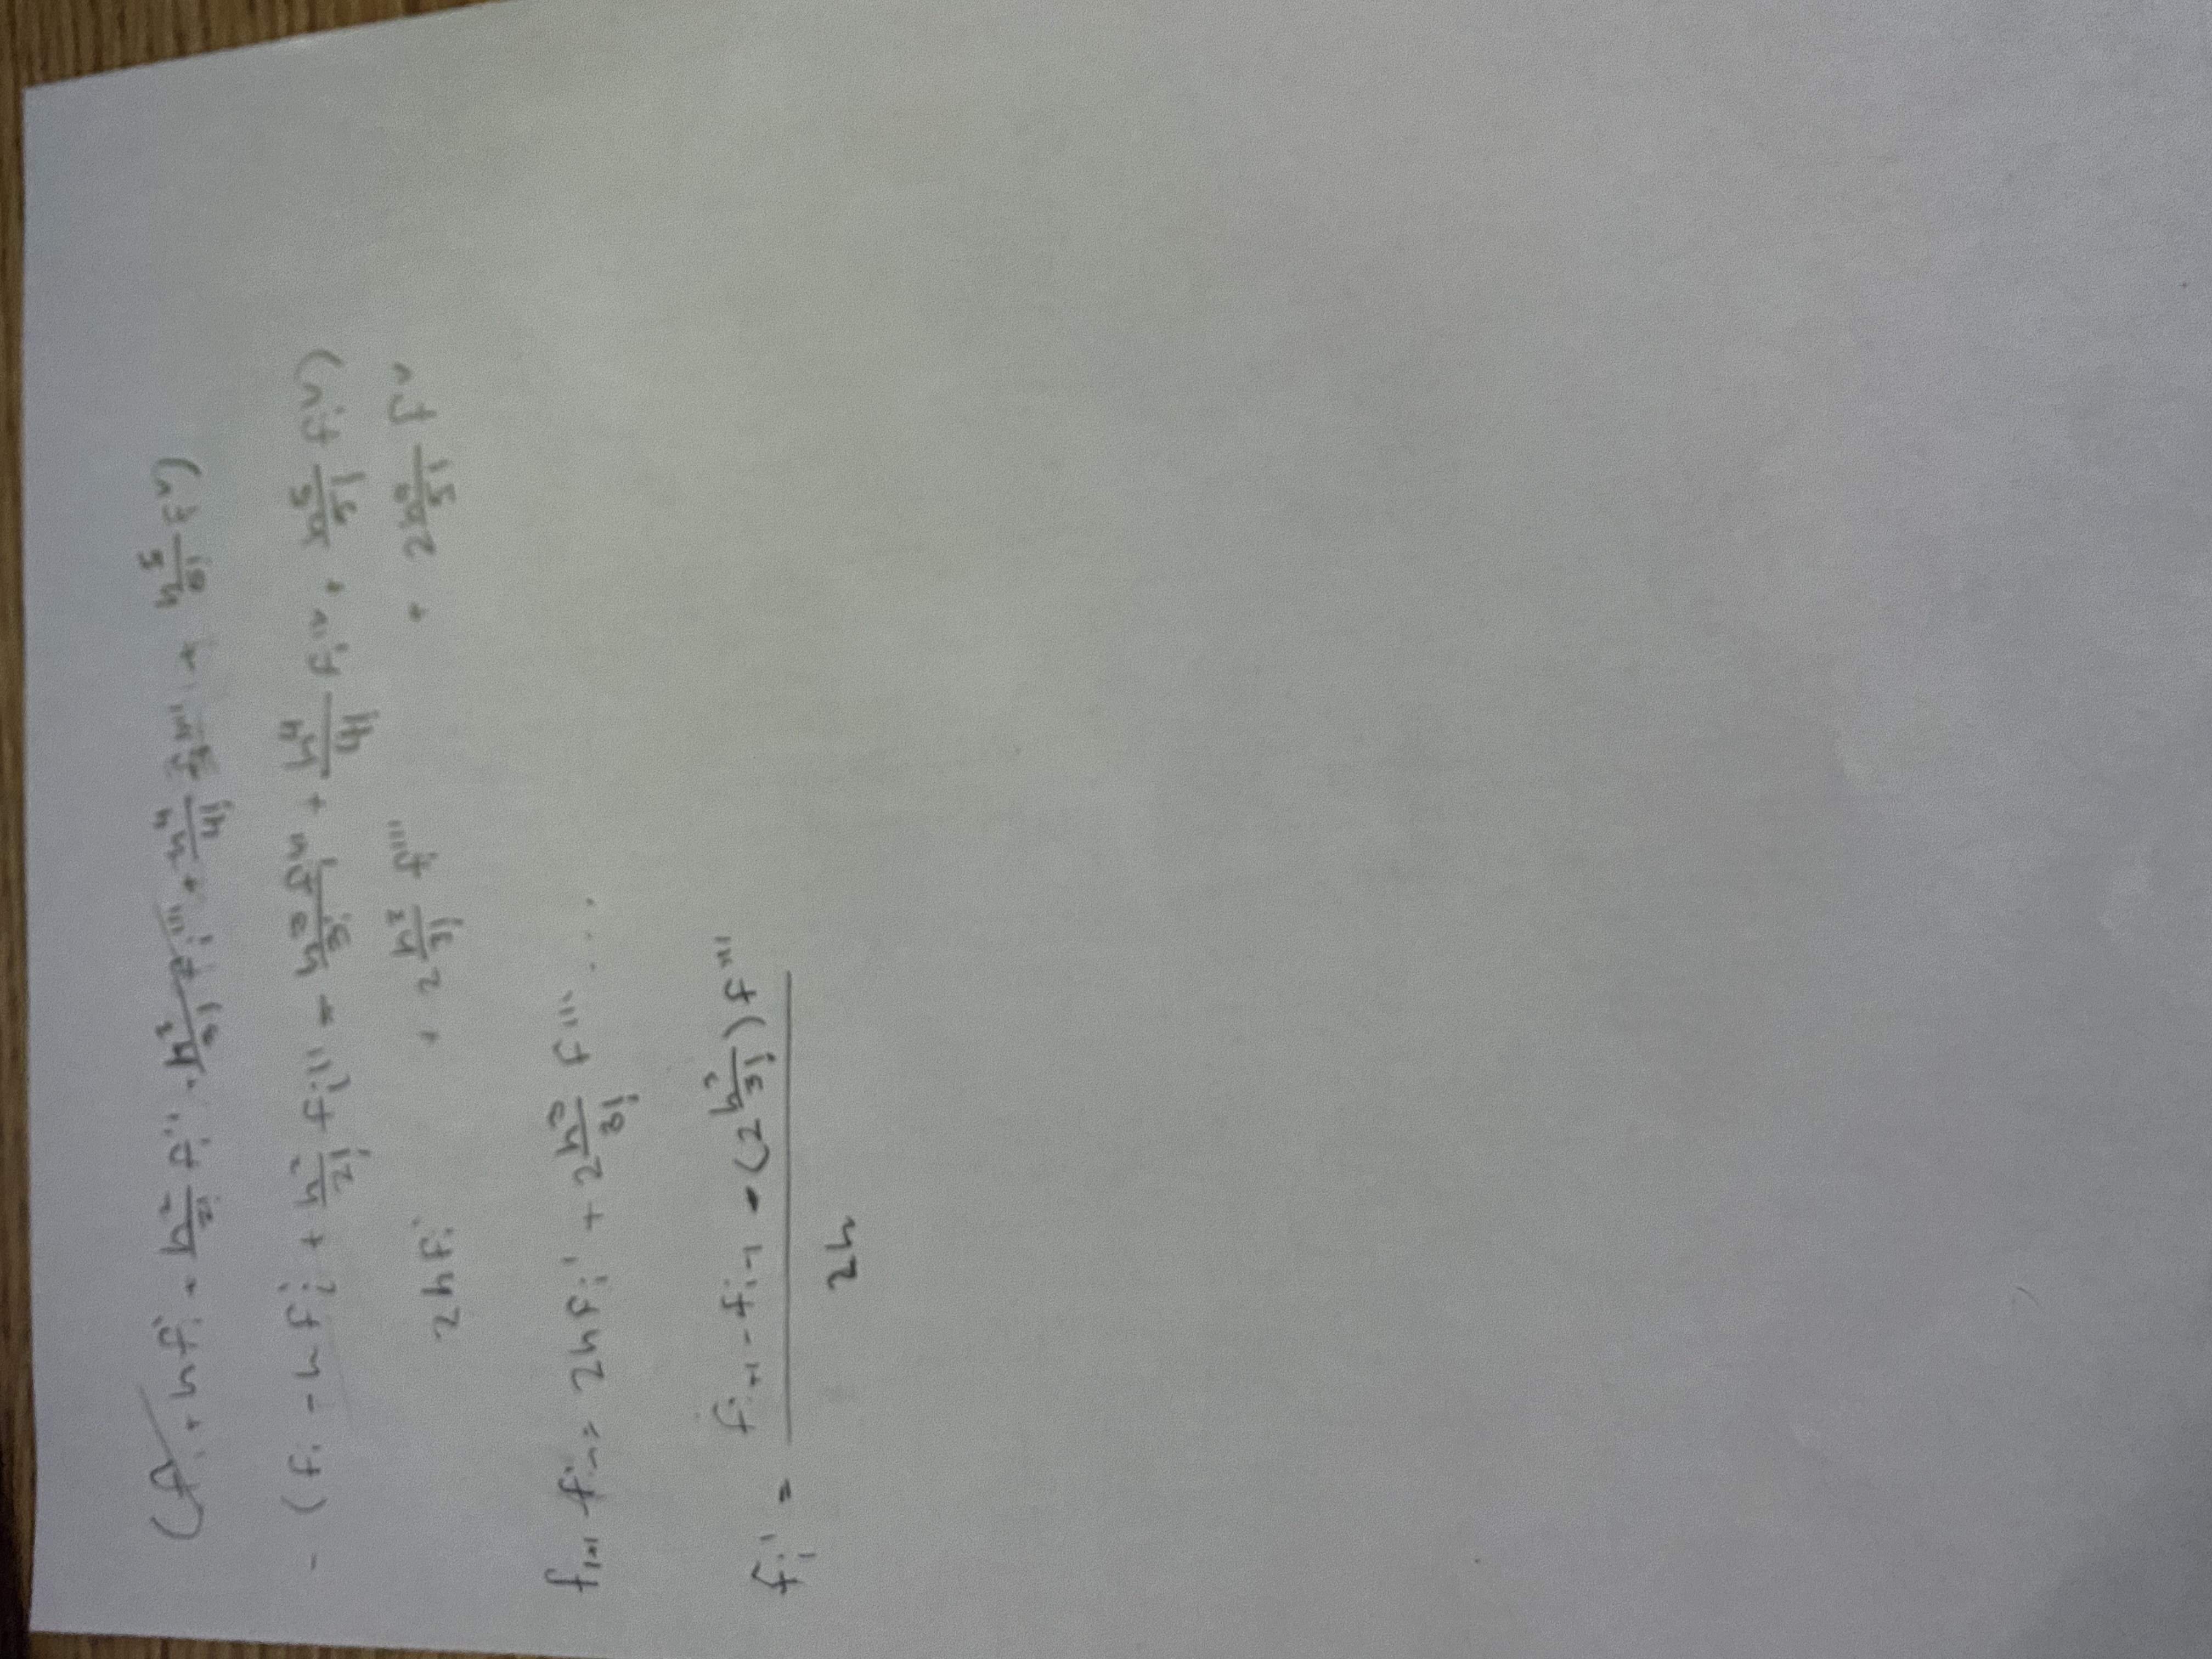 (fᵢ + hfᵢ' + h²/2! fᵢ'' + h³/3! fᵢ''' + h⁴/4! + h⁵/5! fⱽ)
- (fᵢ - hfᵢ' + h²/2! fᵢ'' - h³/3! fᵢ''' + h⁴/4! fᵢᴵⱽ + h⁵/5! fᵢⱽ)
2hfᵢ' + 2 h³/3! fᵢ''' + 2h⁵/5! fⱽ
fᵢ₊₁ - fᵢ₋₁ = 2hfᵢ' + 2 h³/3! f''' ...
fᵢ' = (fᵢ₊₁ - fᵢ₋₁ - (2 h³/3!) f''') / 2h